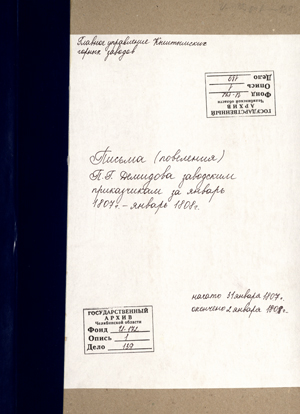 Главное управление Кыштымских
горных заводов
ГОСУДАРСТВЕННЫЙ
АРХИВ
Челябинской области
Фонд И-172
Опись 1
Дело
Письма (повеления)
П.Г. Демидова заводским
приказчикам за январь
1807г. – январь 1808г.
начато 31 января 1807г.
окончено 2 января 1808г.
ГОСУДАРСТВЕННЫЙ
АРХИВ
Челябинской области
Фонд И-172
Опись 1
Дело 119